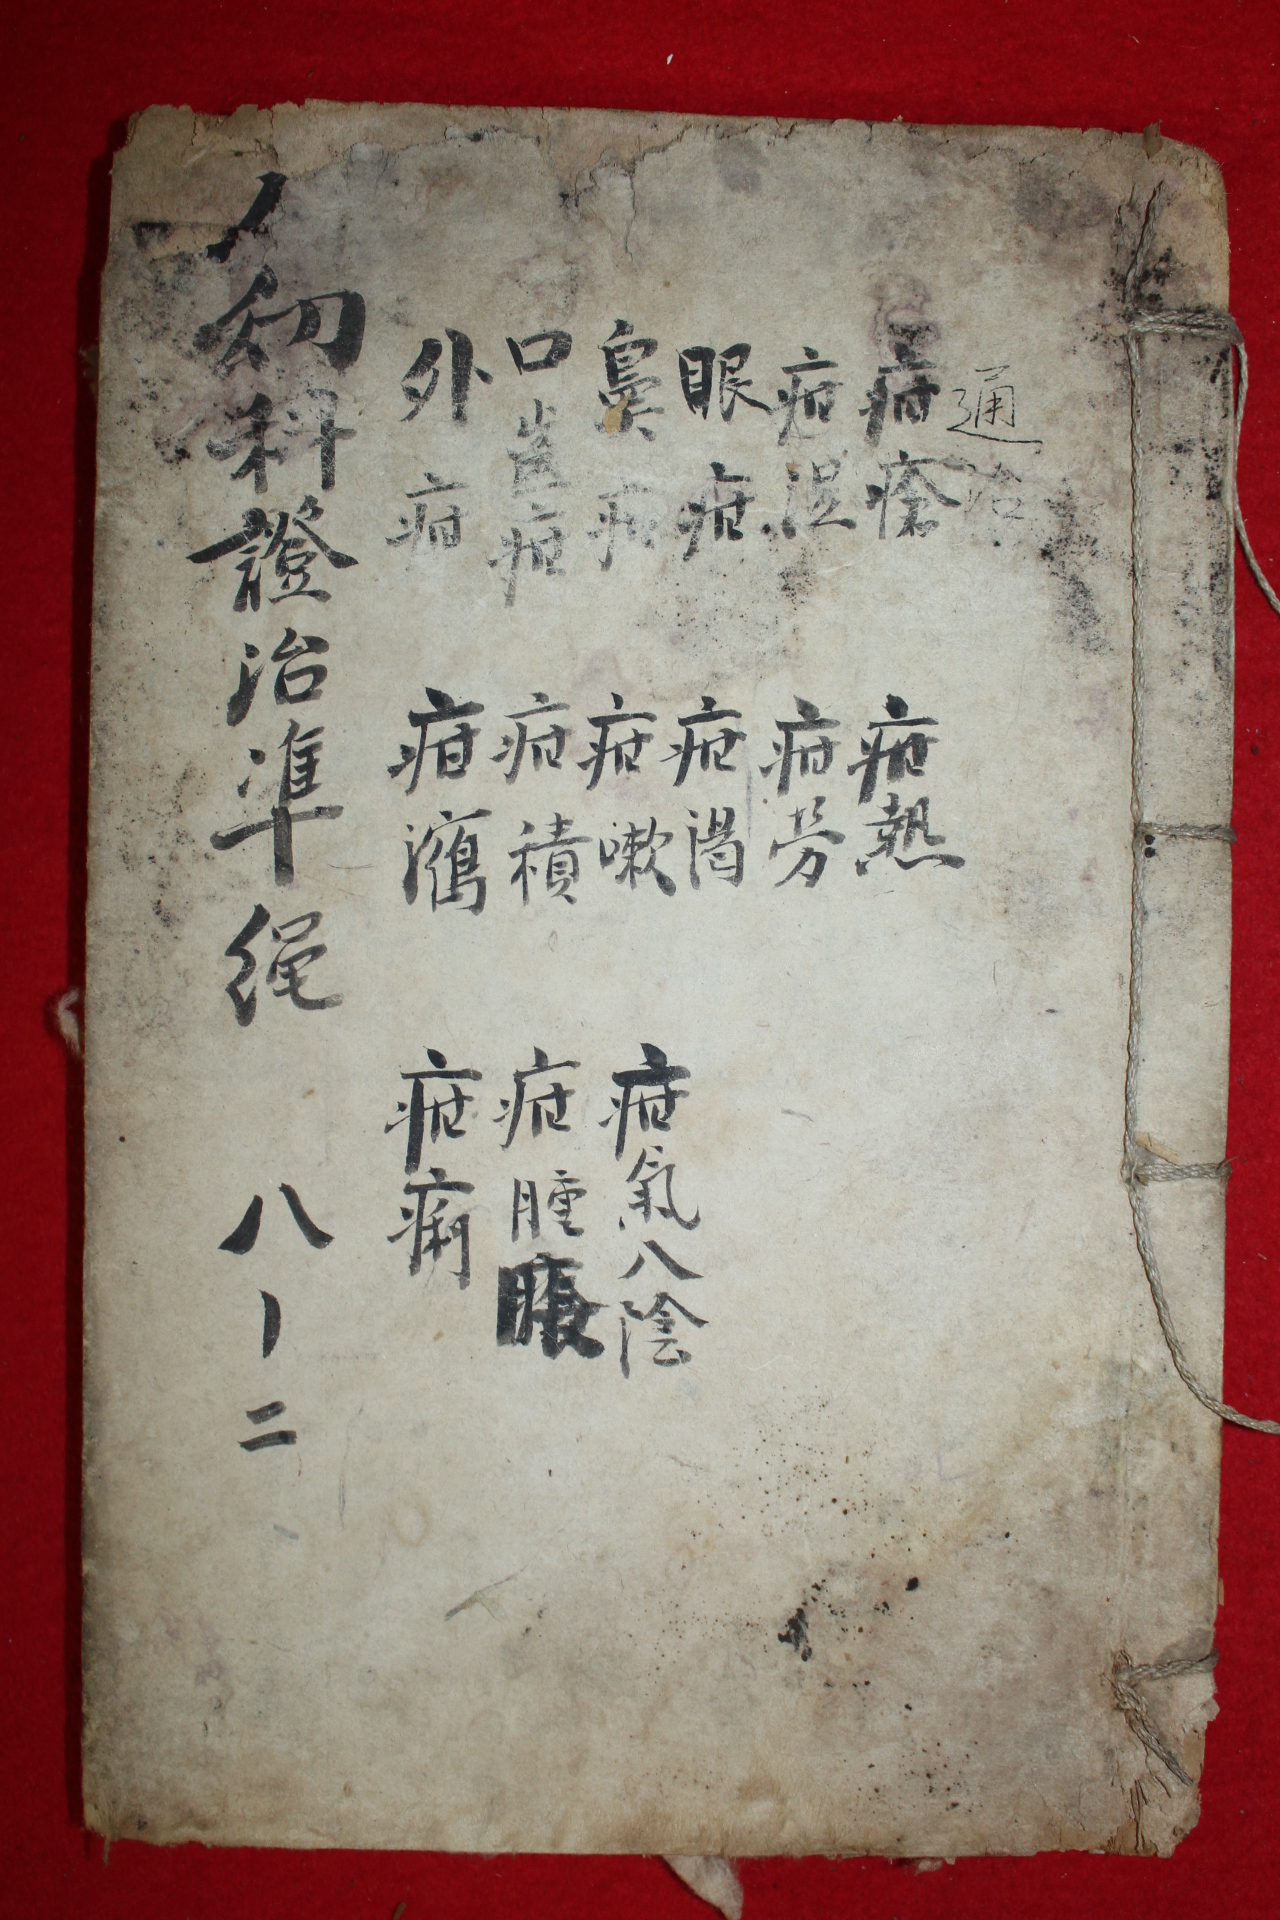 通治
疳瘡
疳湿
眼疳
鼻疳
口齒疳
外疳
疳熱
疳労
疳渴
疳嗽
疳積
疳瀉
疳氣八陰
疳腫脹
疳痢
幼科證治準繩 八ノ二